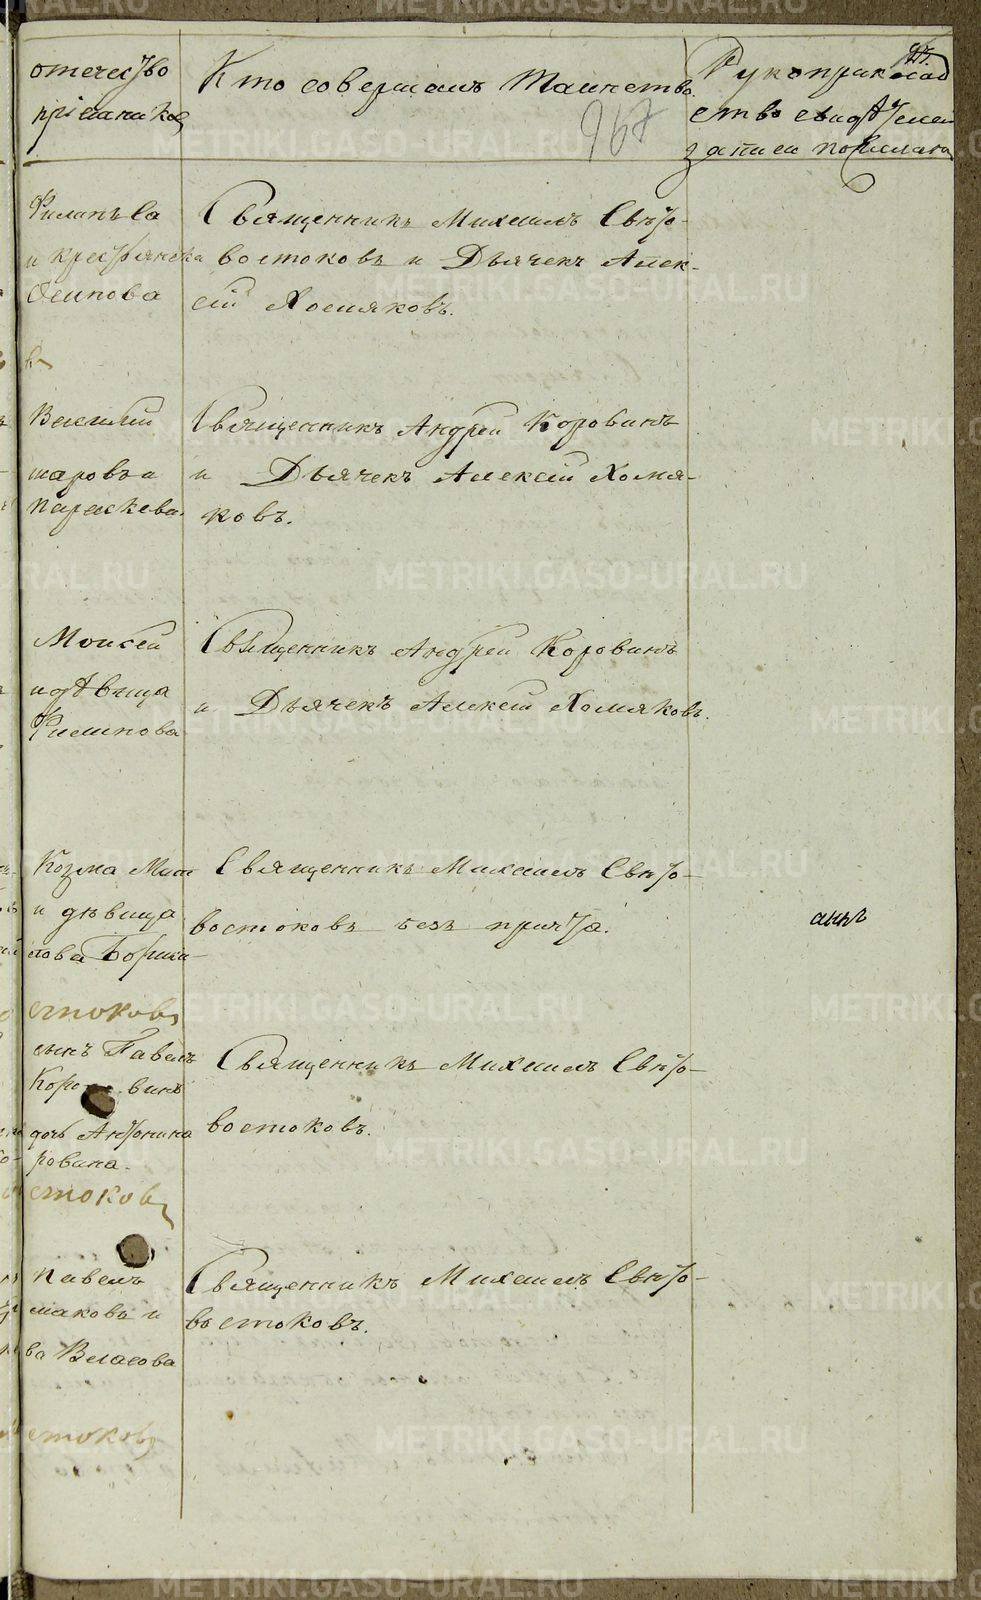 отечество
пріемников
Кто совершалъ Таинство.
967
Рукоприклад
ство свидѣтелей
записи по желанію
Филипьва
и крестьянска
Осипова
Священникъ Михаилъ Свѣто-
востоковъ и Дьячекъ Алек-
сій Хомяковъ.
Василій
шаровъ и
Параскева
Священникъ Андрей Коровинъ
и Дьячекъ Алексій Хомя-
ковъ.
Моисей
и дѣвица
Филипова
Священникъ Андрей Коровинъ
и Дьячекъ Алексій Хомяковъ.
Козма Мит
и дѣвица
Священникъ Михаилъ Свѣто-
востоковъ безъ причта.
стоковъ
сынъ Павелъ
винъ
дочь Антонина
ровина.
стоковъ
Священникъ Михаилъ Свѣто-
востоковъ.
Павелъ
маковъ и
ва Власова
стоковъ
Священникъ Михаилъ Свѣто-
востоковъ.
METRIKI.GASO-URAL.RU